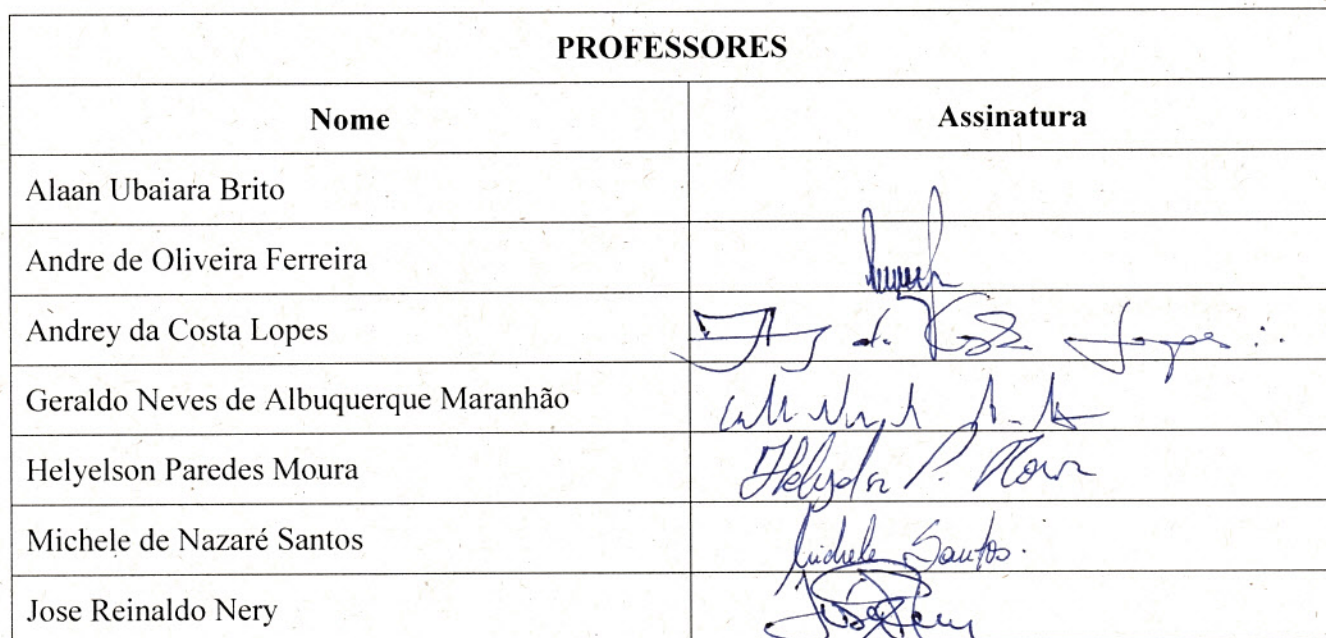 PROFESSORES
Nome Assinatura
Alaan Ubaiara Brito
Andre de Oliveira Ferreira
Andrey da Costa Lopes da Costa Lopes
Geraldo Neves de Albuquerque Maranhão
Helyelson Paredes Moura Helyelson P. Moura
Michele de Nazaré Santos Michele Santos
Jose Reinaldo Nery